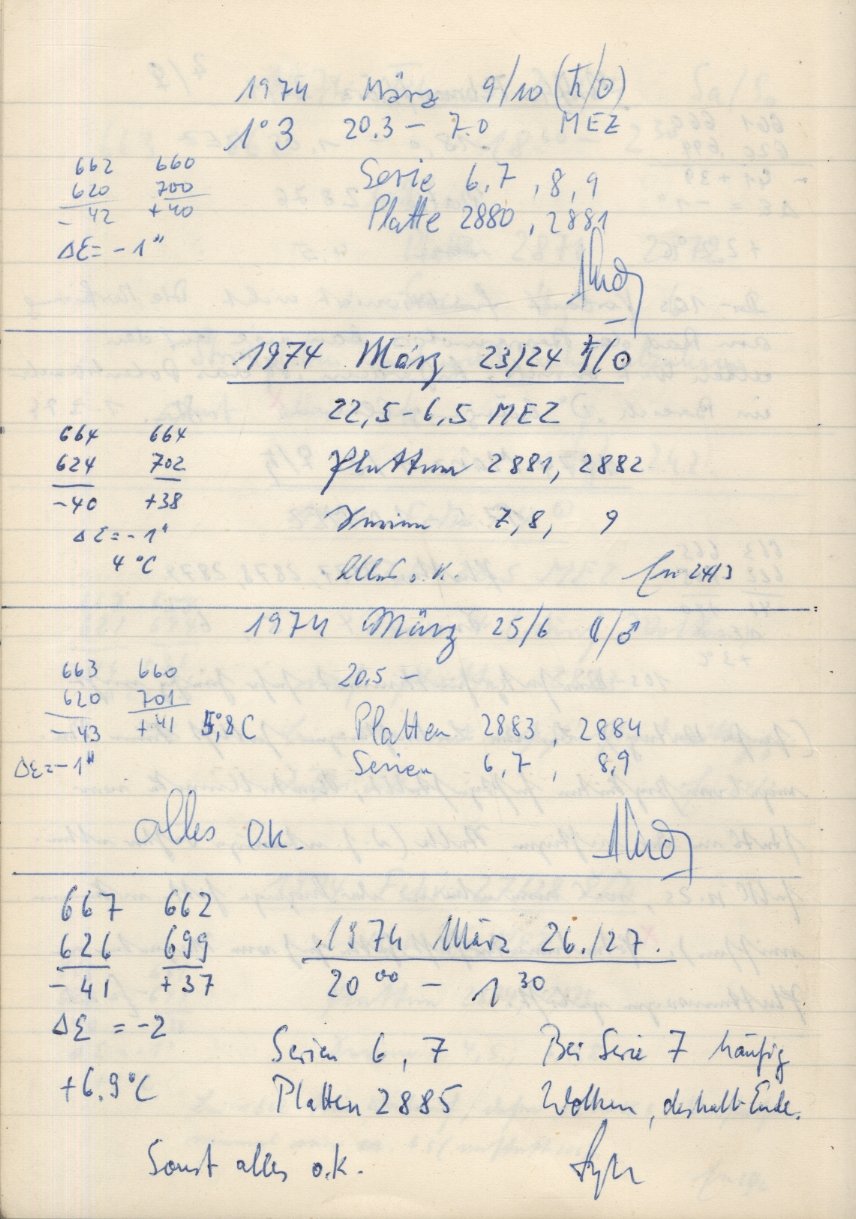 1974 März 9/10 (♄/☉)
1°3 20.3 – 7.0 MEZ
662 660
620 700
– 42 +40
Δε = – 1"
Serie 6,7 , 8,9
Platte 2880 , 2881
1974 März 23/24 ♄/☉
22,5 – 6,5 MEZ
664 664
624 702
–40 +38
Δε = –1"
4 °C
Platten 2881, 2882
Serien 7,8, 9
Alles o.k. 24/3
1974 März 25/6 ☾/♂
663 660
620 701
– 43 + 41 5,8 C
Δε = – 1"
20,5 –
Platten 2883 , 2884
Serien 6,7 , 8,9
alles o.k.
667 662
626 699
– 41 + 37
Δε = –2
+6.9°C
1974 März 26./27.
20⁰⁰ – 1³⁰
Serien 6 , 7 Bei Serie 7 häufig
Platten 2885 Wolken, deshalb Ende.
Sonst alles o.k.